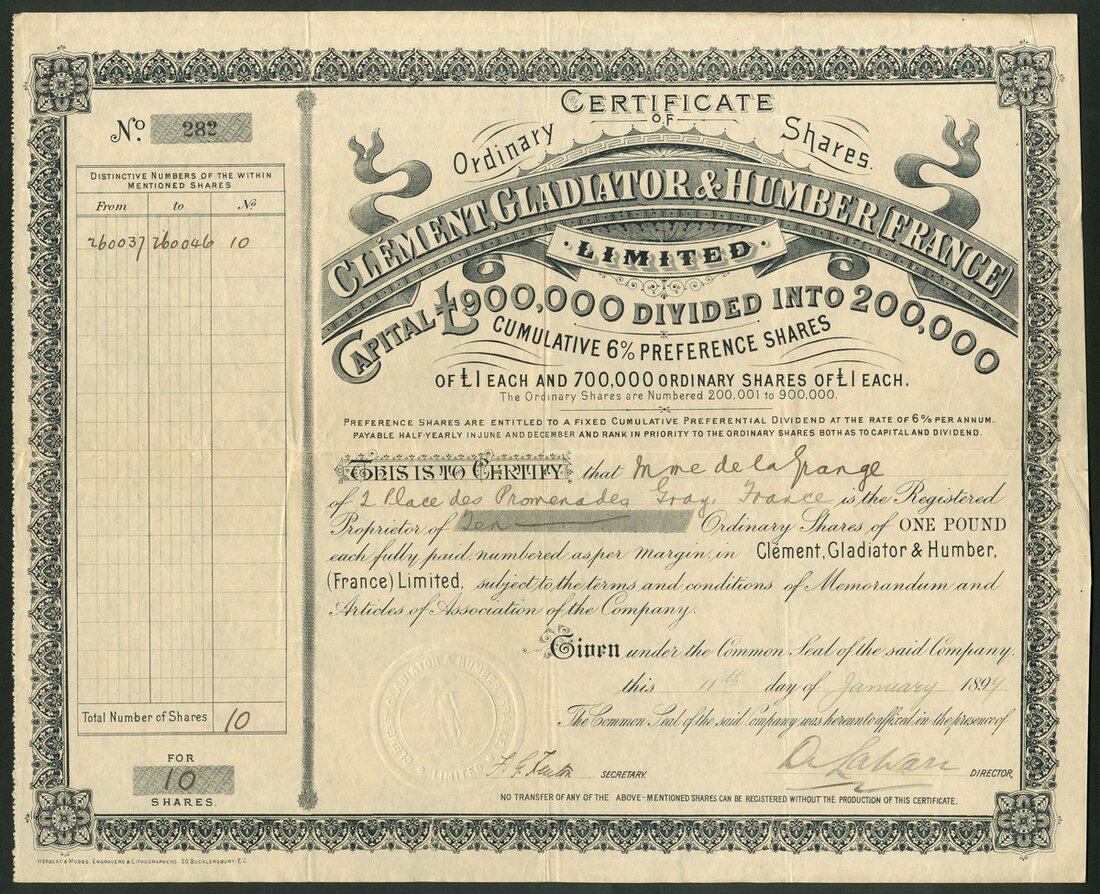 No 282
DISTINCTIVE NUMBERS OF THE WITHIN
MENTIONED SHARES
From to No
260037 260046 10
Total Number of Shares 10
FOR
10
SHARES.
CERTIFICATE
OF
Ordinary Shares.
CLÉMENT, GLADIATOR & HUMBER (FRANCE)
LIMITED
CAPITAL £900,000 DIVIDED INTO 200,000
CUMULATIVE 6% PREFERENCE SHARES
OF £1 EACH AND 700,000 ORDINARY SHARES OF £1 EACH.
The Ordinary Shares are Numbered 200,001 to 900,000.
PREFERENCE SHARES ARE ENTITLED TO A FIXED CUMULATIVE PREFERENTIAL DIVIDEND AT THE RATE OF 6% PER ANNUM.
PAYABLE HALF-YEARLY IN JUNE AND DECEMBER AND RANK IN PRIORITY TO THE ORDINARY SHARES BOTH AS TO CAPITAL AND DIVIDEND.
THIS IS TO CERTIFY that Mme de la Grange
of 2 Place des Promenades Gray, France is the Registered
Proprietor of Ten Ordinary Shares of ONE POUND
each fully paid, numbered as per margin, in Clément, Gladiator & Humber,
(France) Limited, subject to the terms and conditions of Memorandum and
Articles of Association of the Company.
Given under the Common Seal of the said Company.
this 11th day of January 1897
The Common Seal of the said Company was hereunto affixed in the presence of
CLEMENT, GLADIATOR & HUMBER (FRANCE)
LIMITED
SECRETARY.
DIRECTOR.
NO TRANSFER OF ANY OF THE ABOVE-MENTIONED SHARES CAN BE REGISTERED WITHOUT THE PRODUCTION OF THIS CERTIFICATE.
HERBERT & MOBBS ENGRAVERS & LITHOGRAPHERS. 20 BUCKLERSBURY. E.C.